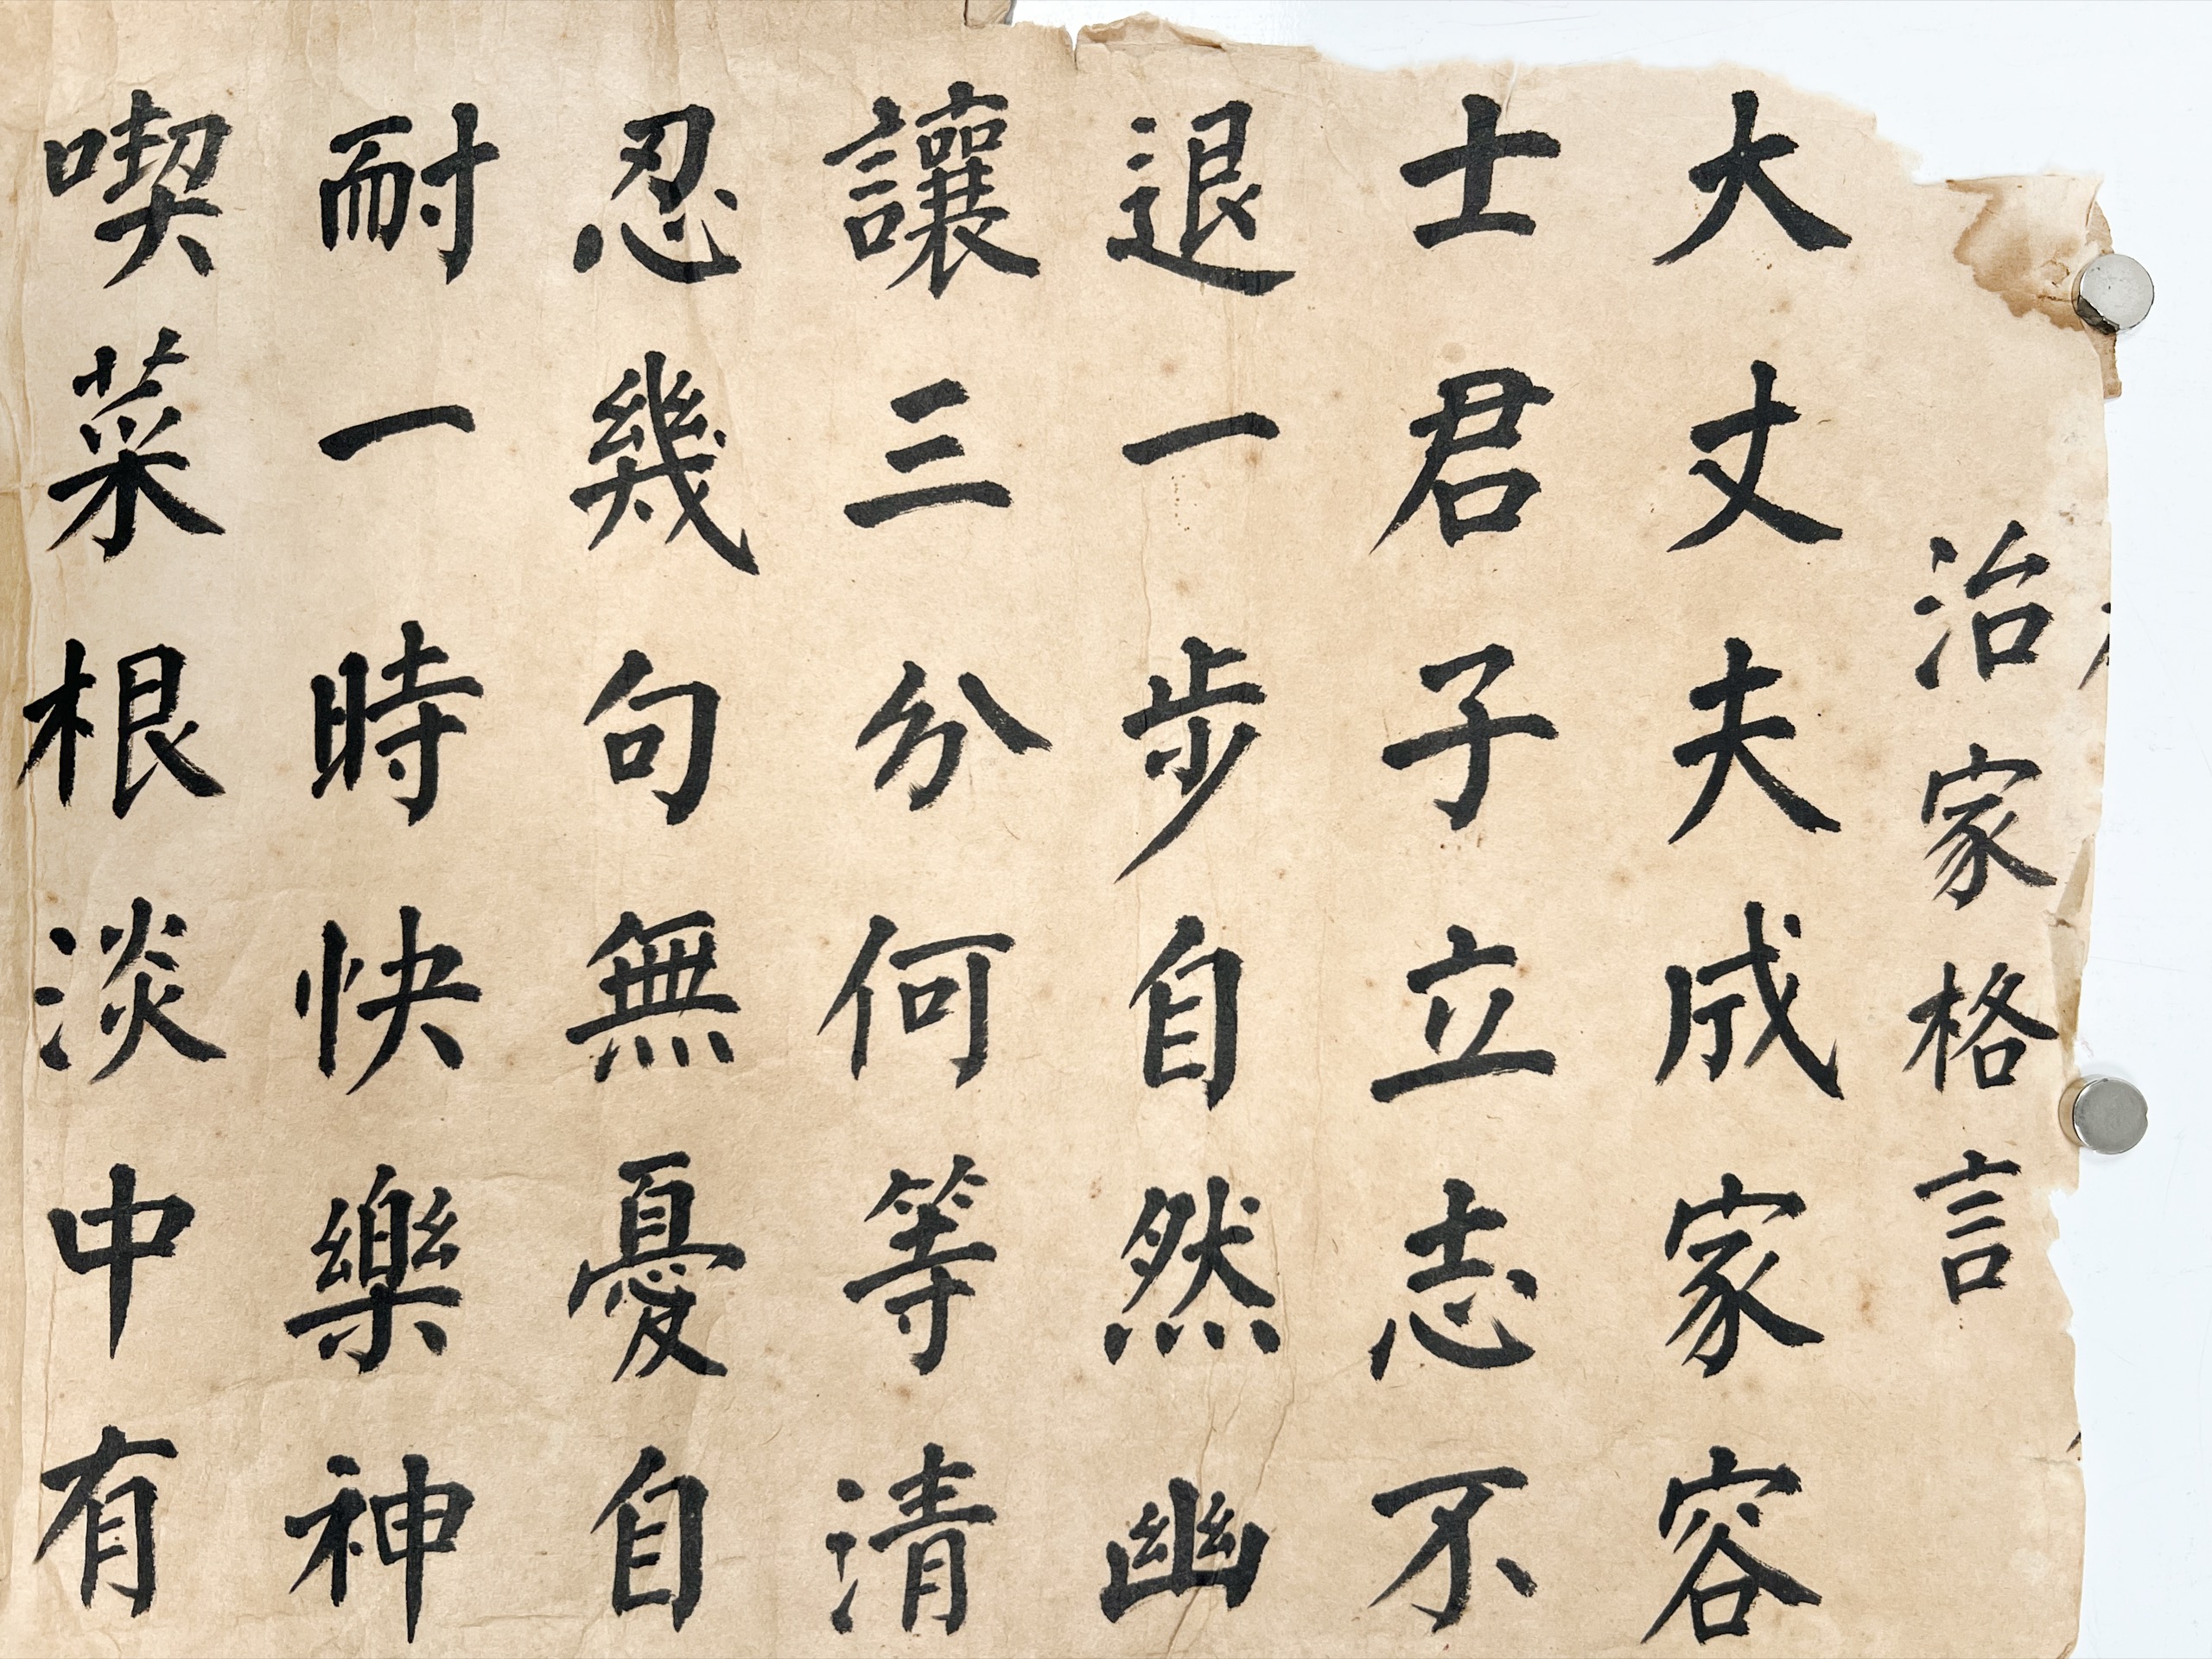 治家格言
大丈夫成家容
士君子立志不
退一步自然幽
讓三分何等清
忍幾句無憂自
耐一時快樂神
喫菜根淡中有